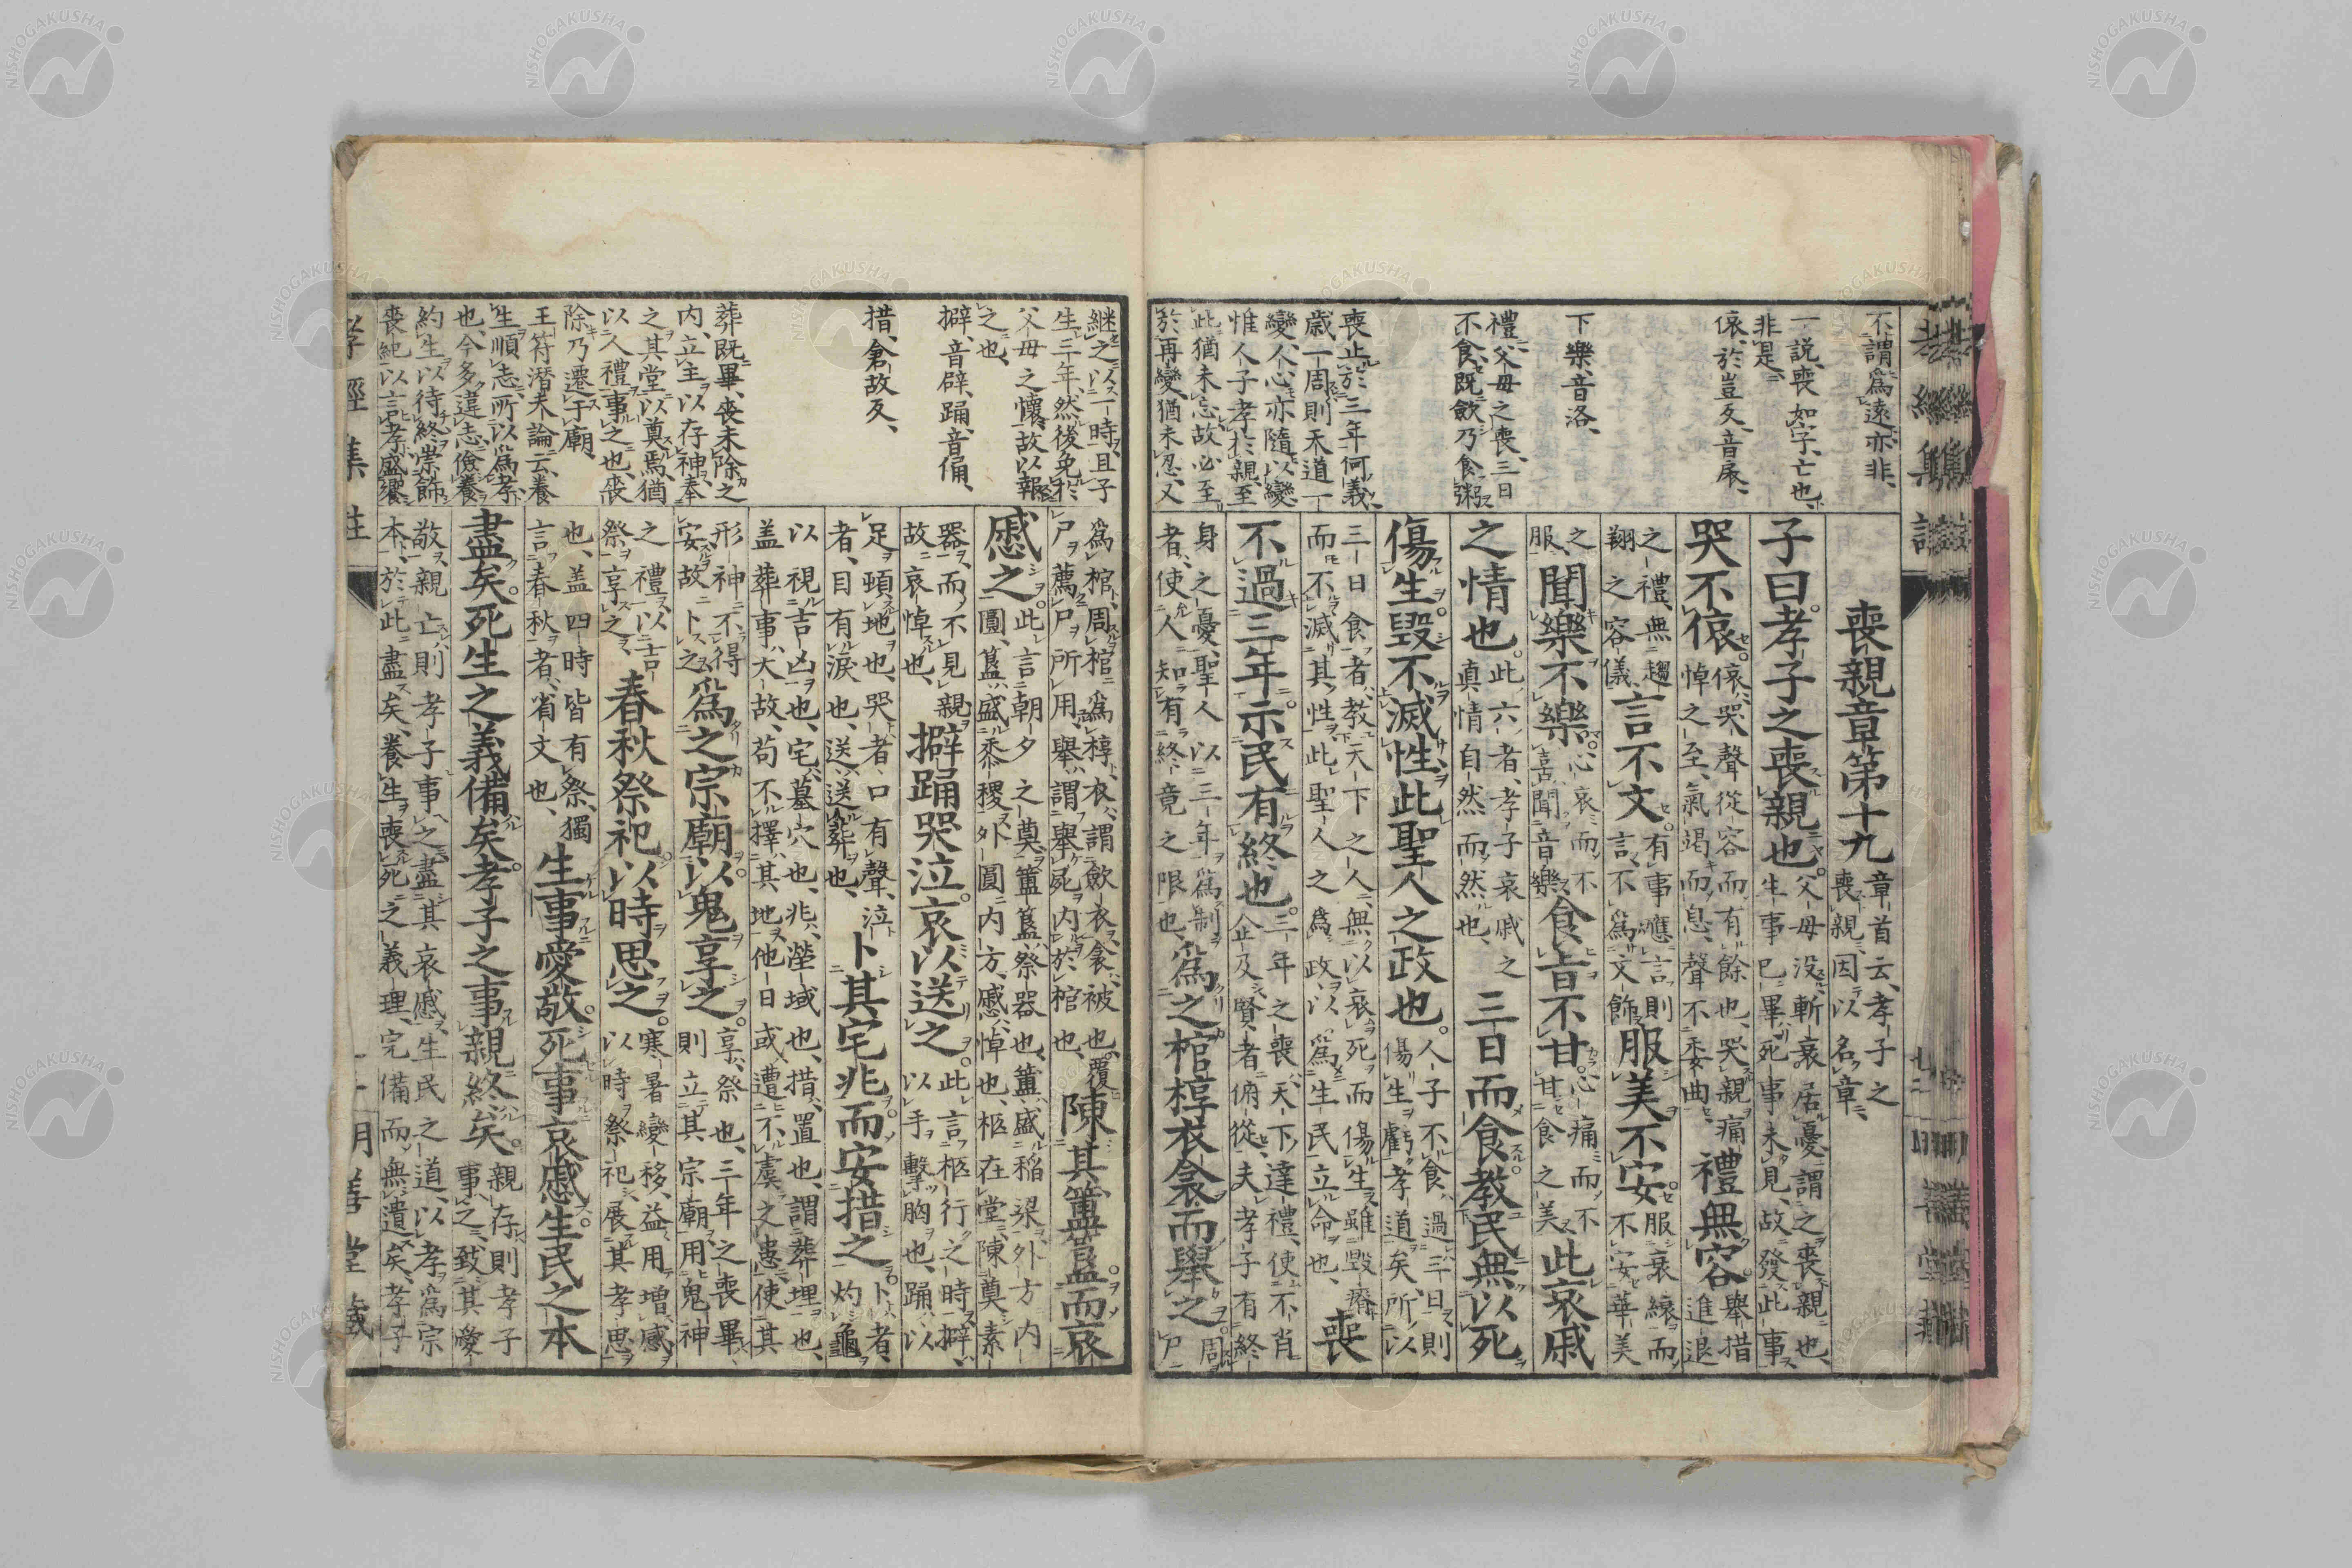 不謂爲遠亦非
一説喪如字亡也
非是
偯於豈反音扆
下樂音洛
禮父母之喪三日
不食既飲乃食粥
喪止於三年何義
歳一周則天道一
變人心亦隨以變
惟人子孝於親至
此猶未忘故必至
於再變猶未忍又
喪親章第十九
章首云孝子之
喪親因以名章
子曰孝子之喪親也
父母没斬衰居憂謂之喪親也
生事已畢死事未見故發此事
哭不偯
偯哭聲從容而有餘也哭親痛
悼之至氣竭而息聲不委曲
禮無容
舉措
進退
之禮無趨
翔之容儀
言不文
有事應言則
言不爲文飾
服美不安
服衰縗而
不安華美
之
服
聞樂不樂
心哀而不
喜聞音樂
食旨不甘
心痛而不
甘食之美
此哀戚
之情也
此六者孝子哀戚之
真情自然而然也
三日而食教民無以死
傷生毀不滅性此聖人之政也
人子不食過三日則
傷生虧孝道矣所以
三日食者教天下之人無以哀死而傷生雖毀瘠
而不滅其性此聖人之爲政以爲生民立命也
喪
不過三年示民有終也
三年之喪天下達禮使不肖
企及賢者俯從夫孝子有終
身之憂聖人以三年爲制
者使人知有終竟之限也
爲之棺椁衣衾而舉之
周
尸
継之以一時且子
生三年然後免於
父母之懷故以報
之也
擗音辟踊音俑
措倉故反
葬既畢喪未除之
内立主以存神奉
之其堂以奠焉猶
以人禮事之也喪
除乃遷于廟
王符潜夫論云養
生順志所以爲孝
也今多違志儉養
約生以待終崇飾
喪紀以言孝盛饗
爲棺周棺爲椁衣謂歛衣衾被也覆
尸薦尸所用舉謂舉屍内於棺也
陳其簠簋而哀
慼之
此言朝夕之奠簠簋祭器也簠盛稲梁外方内
圓簋盛黍稷外圓内方慼悼也柩在堂陳奠素
器而不見親
故哀悼也
擗踊哭泣哀以送之
此言柩行之時擗
以手擊胸也踊以
足頓地也哭者口有聲泣
者目有淚也送送葬也
卜其宅兆而安措之
卜者
灼龜
以視吉凶也宅墓穴也兆塋域也措置也謂葬埋也
蓋葬事大故苟不擇其地他日或遭不虞之患使其
形神不得
安故卜之
爲之宗廟以鬼享之
享祭也三年之喪畢
則立其宗廟用鬼神
之禮以吉
祭享之
春秋祭祀以時思之
寒暑變移益用增感
以時祭祀展其孝思
也盖四時皆有祭獨
言春秋者省文也
生事愛敬死事哀慼生民之本
盡矣死生之義備矣孝子之事親終矣
親存則孝子
事之致其愛
敬親亡則孝子事之盡其哀慼生民之道以孝爲宗
本於此盡矣養生喪死之義理完備而無遺矣孝子
孝經集註
明善堂藏
NISHOGAKUSHA